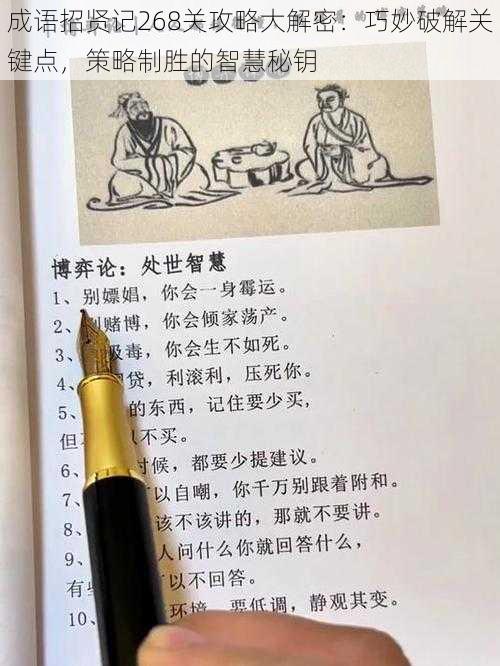 成语招贤记268关攻略大解密：巧妙破解关
键点，策略制胜的智慧秘钥
博弈论：处世智慧
1、别嫖娼，你会一身霉运。
2、赌博，你会倾家荡产。
3、毒，你会生不如死。
4、贷，利滚利，压死你。
5、的东西，记住要少买，
但以不买。
6、时候，都要少提建议。
以自嘲，你千万别跟着附和。
8、该不该讲的，那就不要讲。
9、人问什么你就回答什么，
有以不回答。
10、环境，要低调，静观其变。